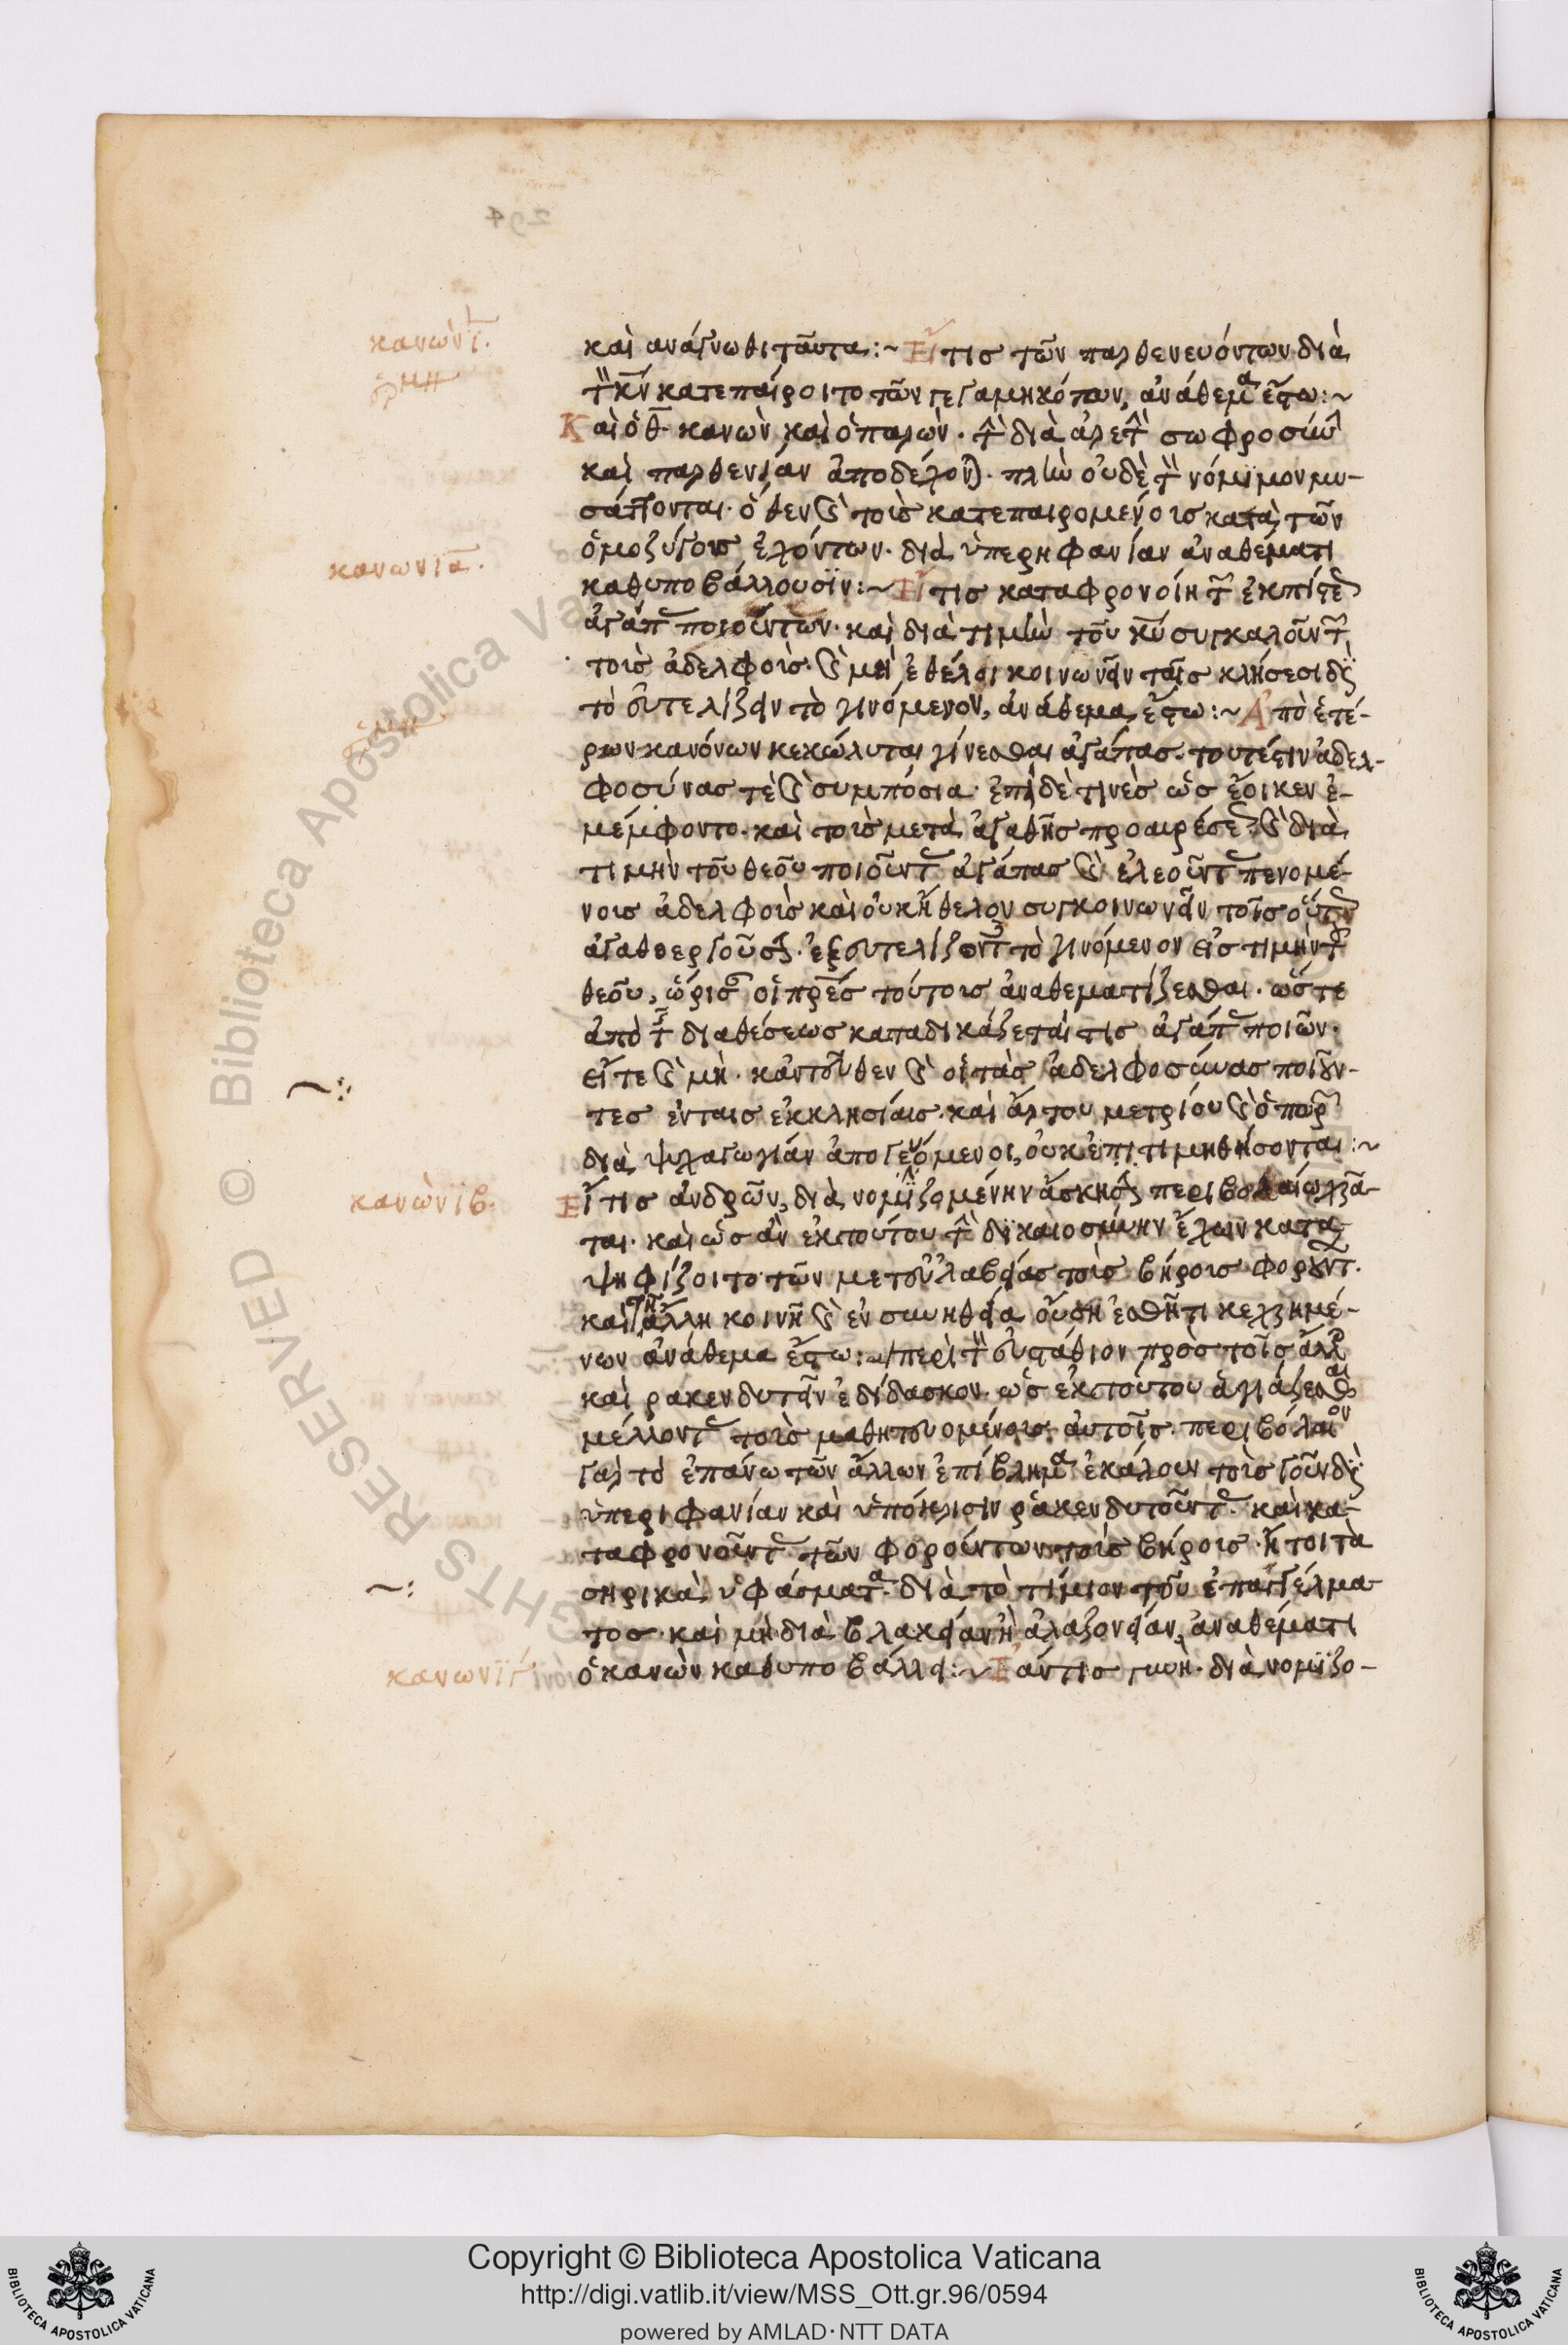 κανὼν ϊ.
ἑρμη
καὶ ανάγνωθι ταῦτα:~ Εἴ τισ τῶν παρθενευόντων διὰ
τὸν κν κατεπαίροιτο τῶν γεγαμηκότων, ἀνάθεμα ἔστω:~
Καὶ ὁ θ κανὼν καὶ ὁ παρὼν. τὴν διὰ ἀρετὴν σωφροσύνην
καὶ παρθενίαν ἀποδέχονται. πλὴν οὐδὲ τὸν νόμϊμον μυ-
σάττονται. ὅθεν καὶ τοὺσ κατεπαιρομένουσ κατὰ τῶν
ὁμοζύγουσ ἐχόντων. διὰ ὑπερηφανίαν ἀναθέματι
κανων ια.
καθυποβάλλουσϊν:~ Εἴ τισ καταφρονοίη τῶν ἐκ πίστεωσ
ἀγάπασ ποιούντων. καὶ διὰ τιμὴν τοῦ κυ συγκαλοῦντων
τοὺσ ἀδελφοὺσ. καὶ μὴ ἐθέλοι κοινωνεῖν ταῖσ κλήσεσι διὰ
τὸ ἐυτελίζειν τὸ γινόμενον, ἀνάθεμα ἔστω:~ Ἀπὸ ἑτέ-
ἑρμη
ρων κανόνων κεκώλυται γίνεσθαι ἀγάπασ. τουτέστιν ἀδελ-
φοσύνασ τὲ καὶ συμπόσια. ἐπεὶ δὲ τινὲσ ὡσ ἔοικεν ἐ-
μέμφοντο. καὶ τοὺσ μετὰ ἀγαθῆσ προαιρέσεωσ καὶ διὰ
τιμὴν τοῦ θεοῦ ποιοῦντασ ἀγάπασ καὶ ἐλεοῦντασ πενομέ-
νουσ ἀδελφοὺσ καὶ οὐκ ἤθελον συγκοινωνεῖν τοῖσ οὕτωσ
ἀγαθοεργοῦσιν. ἐξευτελίζοντεσ τὸ γινόμενον εἰσ τιμὴν τοῦ
θεοῦ, ὥρισαν οἱ πρέσ τούτουσ ἀναθεματίζεσθαι. ὥστε
ἀπὸ τῆσ διαθέσεωσ καταδικάζεταί τισ ἀγάπασ ποιῶν.
εἴτε καὶ μὴ. κἀντεῦθεν καὶ οἱ τὰσ ἀδελφοσύνασ ποιοῦν-
~:·
τεσ ἐν ταισ ἐκκλησίαισ. καὶ ἄρτου μετρίου καὶ ὀπώρασ
διὰ ψυχαγωγίαν ἀπογευόμενοι, οὐκ ἐπιτιμηθήσονται:~
κανὼν ϊβ.
Εἴ τισ ἀνδρῶν, διὰ νομϊζομένην ἄσκησιν περιβολαίω χρᾶ-
ται. καὶ ὡσ ἂν ἐκ τούτου τὴν δϊκαιοσύνην ἔχων κατα-
ψηφίζοιτο τῶν μετ' εὐλαβείασ τοὺσ βήρουσ φορούντων.
καὶ τῆ ἄλλη κοινῆ καὶ ἐν συνηθεία οὔση ἐσθῆτι κεχρημέ-
νων ἀνάθεμα ἔστω:~ περὶ τὸν εὐστάθιον πρὸσ τοῖσ ἄλλοισ
καὶ ρακενδυτεῖν ἐδίδασκον. ὡσ ἐκ τούτου ἁγιάζεσθαι
μέλλοντασ τοὺσ μαθητευομένουσ αὐτοῖσ. περιβόλαιον
γὰρ τὸ ἐπάνω τῶν ἄλλων ἐπίβλημα ἐκάλουν τοὺσ γοῦν διὰ
ὑπεριφανίαν καὶ ὑπόκρισιν ρακενδυτοῦντασ. καὶ κα-
ταφρονοῦντασ τῶν φορούντων τοὺσ βήρουσ. ἤτοι τὰ
~:
σηρικὰ ὑφάσματα. διὰ τὸ τίμιον τοῦ ἐπαγγέλμα-
τοσ. καὶ μὴ διὰ βλακείαν ἢ ἀλαζονείαν, ἀναθέματι
κανων ϊγ
ὁ κανὼν καθυποβάλλει:~ Ἐάν τισ γυνὴ. διὰ νομϊζο-
Copyright © Biblioteca Apostolica Vaticana
http://digi.vatlib.it/view/MSS_Ott.gr.96/0594
powered by AMLAD·NTT DATA